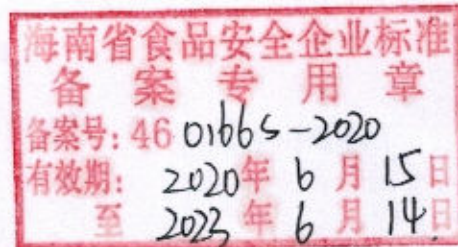 海南省食品安全企业标准
备案专用章
备案号：46 0166S-2020
有效期：2020年6月15日
至 2023年6月14日